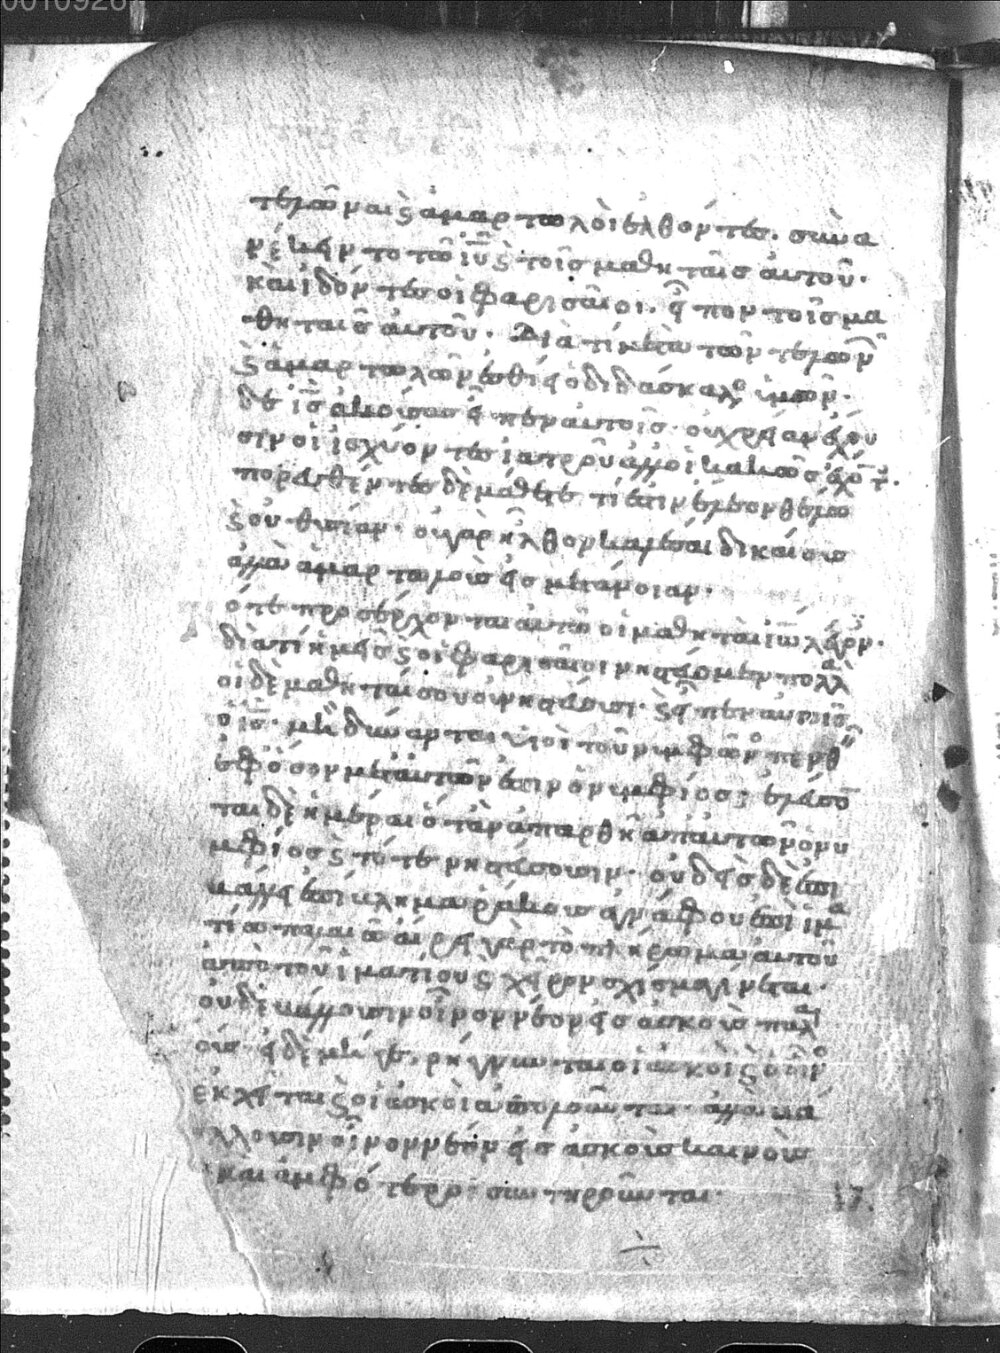 0010926
τελῶναι ς ἁμαρτωλοὶ ἐλθόντες. συνα
νέκειντο τῶ ιυ ς τοῖς μαθηταῖς αὐτοῦ.
καὶ ἰδόντες οἱ φαρισαῖοι. εἶπον τοῖς μα
θηταῖς αὐτοῦ. Διὰ τί μετὰ τῶν τελωνῶν
ς ἁμαρτωλῶν ἐσθίει ὁ διδάσκαλος ὑμῶν.
δε ις ἀκούσας εἶπεν αὐτοῖς. οὐ χρείαν ἔχου
σιν οἱ ἰσχύοντες ἰατροῦ ἀλλ οἱ κακῶς ἔχοντ.
πορευθέντες δὲ μάθετε τί ἐστιν ἔλεον θέλω
ς οὐ θυσίαν. οὐ γὰρ ἦλθον καλέσαι δικαίους
ἀλλὰ ἁμαρτωλοὺς εἰς μετάνοιαν.
ότε προσέρχονται αὐτῶ οἱ μαθηταὶ ιω λέγον.
διατί ἡμεῖς ς οἱ φαρισαῖοι νηστεύομεν πολλὰ
οἱ δὲ μαθηταί σου οὐ νηστεύουσι. ς εἶπεν αὐτοῖς
ὁ ις. μὴ δύνανται υἱοὶ τοῦ νυμφῶνος πενθ
ἐφ ὅσον μετ αὐτῶν ἐστιν ὁ νυμφίος; ἐλεύσο
ται δὲ ἡμέραι ὅταν ἀπαρθῆ ἀπ αὐτῶν ὁ νυ
μφίος ς τότε νηστεύσουσιν. οὐδεὶς δὲ ἐπι
βάλλει ἐπίβλημα ῥάκους ἀγνάφου ἐπὶ ἱμα
τίω παλαιῶ αἴρει γὰρ τὸ πλήρωμα αὐτοῦ
ἀπὸ τοῦ ἱματίου ς χεῖρον σχίσμα γίνεται.
οὐδὲ βάλλουσιν οἶνον νέον εἰς ἀσκοὺς παλαι
οὺς. εἰ δὲ μὴ γε, ρήγνυνται οἱ ἀσκοὶ ς ὁ οἶνος
ἐκχεῖται ς οἱ ἀσκοὶ ἀπολοῦνται. ἀλλὰ βά
λλουσιν οἶνον νέον εἰς ἀσκοὺς καινοὺς
καὶ ἀμφότεροι συντηροῦνται.
17.